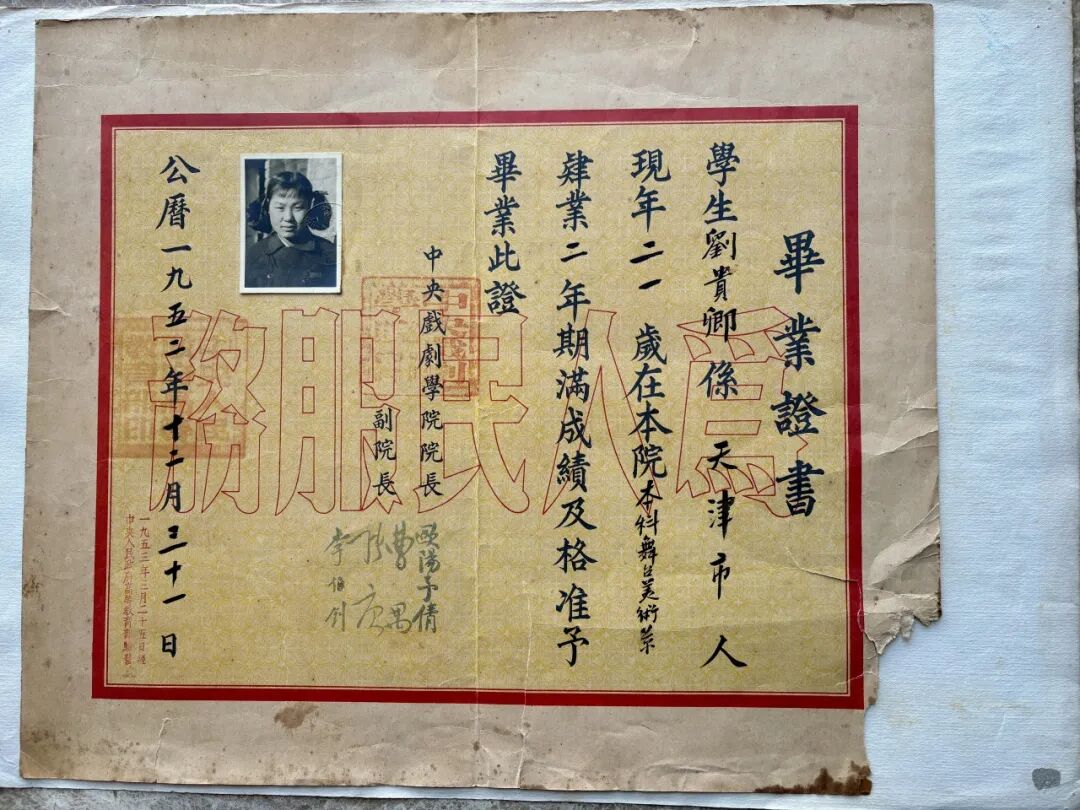 畢業證書
學生劉貴卿係天津市人
現年二一歲在本院本科舞台美術系
肄業二年期滿成績及格准予
畢業此證
中央戲劇學院院長 歐陽予倩
副院長 曹禺
張庚
李伯釗
公曆一九五二年十二月三十一日
為人民服務
一九五三年三月二十五日經
中央人民政府高等教育部驗印